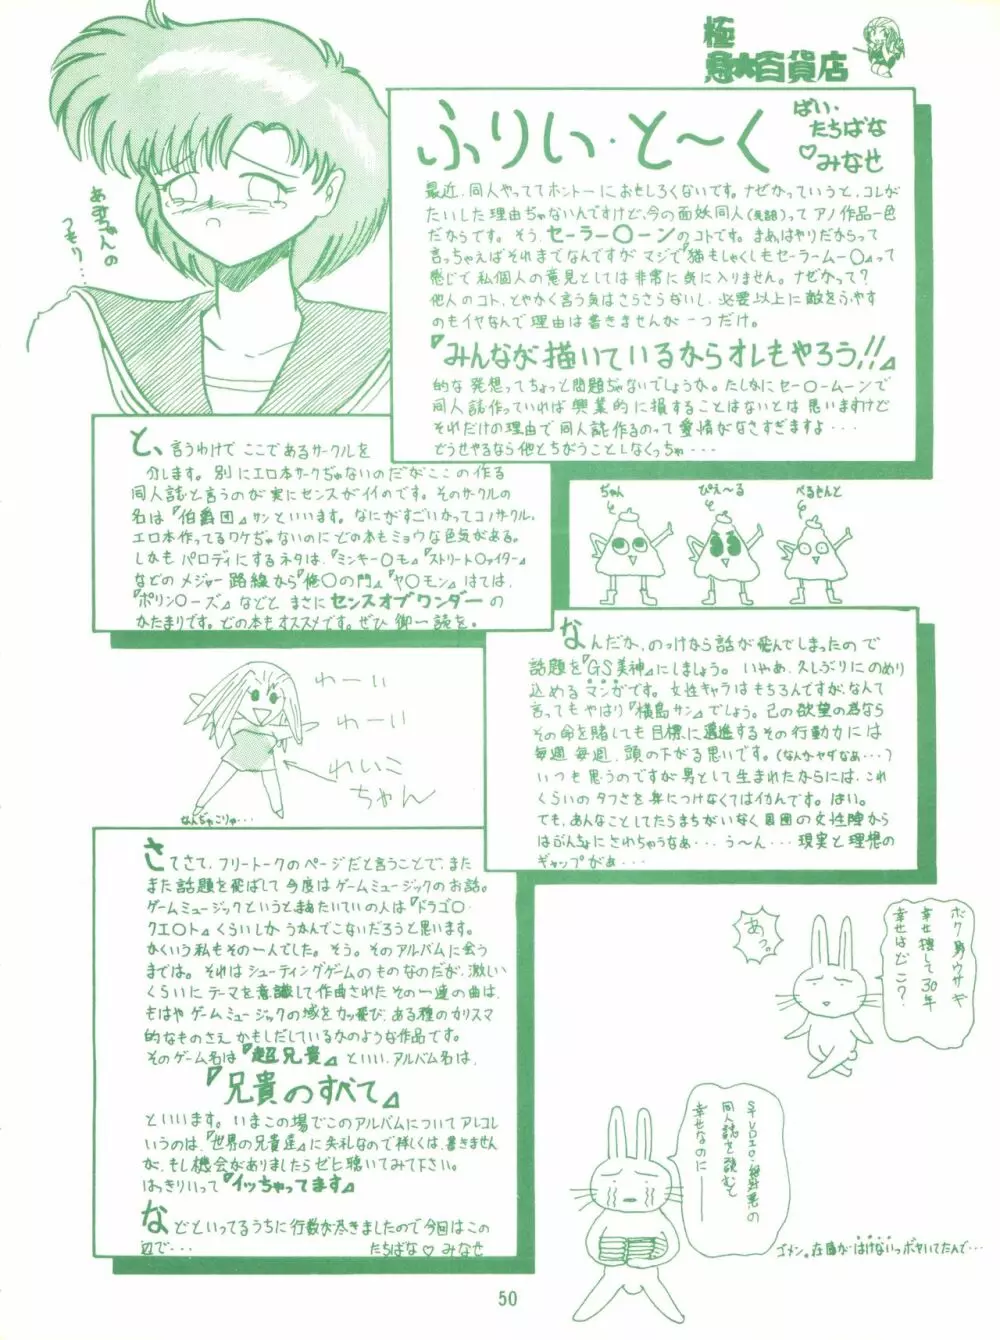 極
百貨店
ふりい・と〜く
ばい・
たちばな
♡みなせ
あみちゃんの
つもり…
最近、同人やっててホントーにおもしろくないです。ナゼかっていうと、コレが
たいした理由ぢゃないんですけど、今の面妖同人(死語)ってアノ作品一色
だからです。そう、セーラー〇ーンのコトです。まあ、はやりだからって
言っちゃえばそれまでなんですが マジで『猫もしゃくしもセーラームー〇』って
感じで私個人の意見としては非常に気に入りません。ナゼかって?
他人のコト、とやかく言う気はさらさらないし、必要以上に敵をふやす
のもイヤなんで理由は書きませんが一つだけ。
『みんなが描いているからオレもやろう!!』
的な発想ってちょっと問題ぢゃないでしょうか。たしかにセー〇ームーンで
同人誌作っていれば興業的に損することはないとは思いますけど
それだけの理由で同人誌作るのって愛情がなさすぎますよ・・・
どうせやるなら他とちがうことしなくっちゃ・・・
と、言うわけでここであるサークルを
介します。別にエロ本サークぢゃないのだがここの作る
同人誌と言うのが実にセンスがイイのです。そのサークルの
名は『伯爵団』サンといいます。なにがすごいかってコノサークル、
エロ本作ってるワケぢゃないのにどの本もミョウな色気がある。
しかもパロディにするネタは、『ミンキー〇モ』『ストリート〇ァイター』
などのメジャー路線から『俺〇の門』『ヤ〇モン』はては、
『ポリン〇ーズ』などと まさにセンスオブワンダーの
かたまりです。どの本もオススメです。ぜひ御一読を。
ぢゃん
ぴえ〜る
べるもんど
なんだか、のっけから話が飛んでしまったので
話題を『GS美神』にしましょう。いやあ、久しぶりにのめり
込めるマンガです。女性キャラはもちろんですが、なんて
言ってもやはり『横島サン』でしょう。己の欲望の為なら
その命を賭しても目標に邁進するその行動力には
毎週毎週、頭の下がる思いです。(なんかヤダなあ・・・)
いつも思うのですが男として生まれたからには、これ
くらいのタフさを身につけなくてはイカんです。はい。
でも、あんなことしてたらまちがいなく周囲の女性陣から
はぶんちょにされちゃうなあ・・・う〜ん・・・現実と理想の
ギャップがあ・・・
わーい
わーい
れいこ
ちゃん
なんぢゃこりゃ・・・
さてさて、フリートークのページだと言うことで、また
また話題を飛ばして今度はゲームミュージックのお話。
ゲームミュージックというとまあたいていの人は『ドラゴ〇・
クエ〇ト』くらいしかうかんでこないだろうと思います。
かくいう私もその一人でした。そう、そのアルバムに会う
までは。それはシューティングゲームのものなのだが、激しい
くらいにテーマを意識して作曲されたその一連の曲は、
もはやゲームミュージックの域をカッ飛び、ある種のカリスマ
的なものさえかもしだしているかのような作品です。
そのゲーム名は『超兄貴』といい、アルバム名は、
『兄貴のすべて』
といいます。いまこの場でこのアルバムについてアレコレ
いうのは、『世界の兄貴達』に失礼なので詳しくは、書きません
が、もし機会がありましたらゼヒ聴いてみて下さい。
はっきりいって『イッちゃってます』
などといってるうちに行数が尽きましたので今回はこの
辺で・・・ たちばな♡みなせ
あっ。
ボク男ウサギ
幸せ捜して30年
幸せはどこ?
STUDIO・絶対悪の
同人誌を読むと
幸せなのに——
ゴメン。在庫がはけないってボヤいてたんで・・・
50